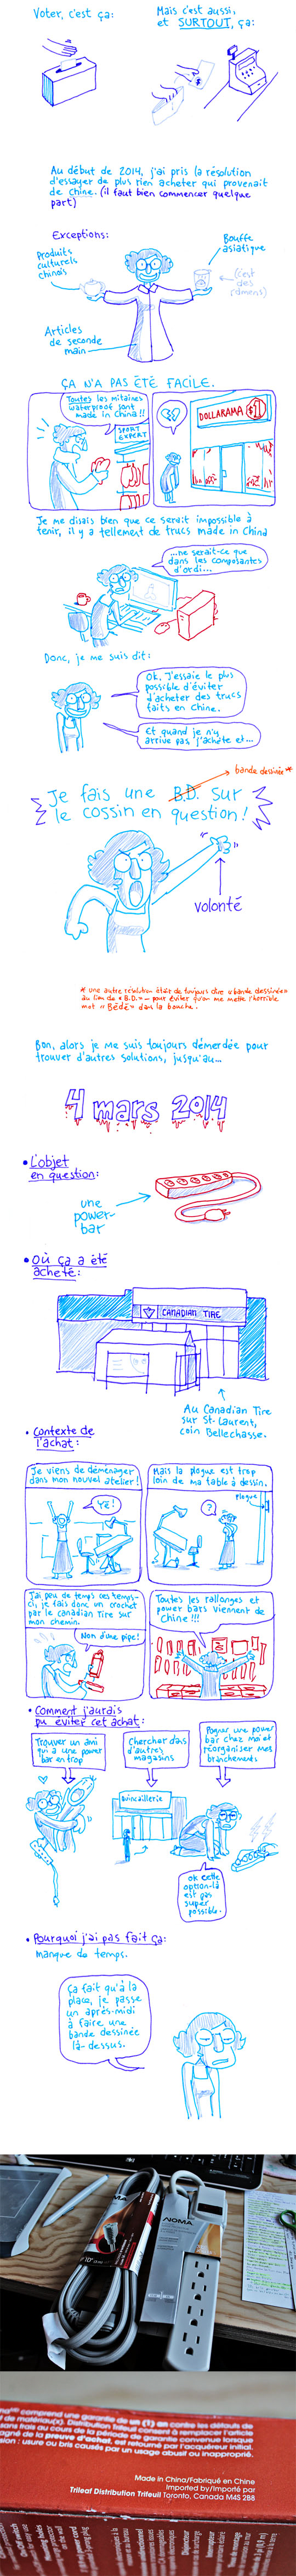 Voter, c'est ça:
Mais c'est aussi,
et SURTOUT, ça:
Au début de 2014, j'ai pris la résolution
d'essayer de plus rien acheter qui provenait
de Chine. (il faut bien commencer quelque
part)
Exceptions:
Produits
culturels
chinois
Bouffe
asiatique
(c'est
des
ramens)
Articles
de seconde
main
ÇA N'A PAS ÉTÉ FACILE.
Toutes les mitaines
waterproof sont
made in China!!
SPORT
EXPERT
DOLLARAMA $1
Je me disais bien que ce serait impossible à
tenir, il y a tellement de trucs made in China
...ne serait-ce que
dans les composantes
d'ordi...
Donc, je me suis dit:
Ok. J'essaie le plus
possible d'éviter
d'acheter des trucs
faits en Chine.
Et quand je n'y
arrive pas, j'achète et...
bande dessinée*
Je fais une B.D. sur
le cossin en question!
volonté
* une autre résolution était de toujours dire «bande dessinée»
au lieu de «B.D.» — pour éviter qu'on me mette l'horrible
mot «Bédé» dans la bouche.
Bon, alors je me suis toujours démerdée pour
trouver d'autres solutions, jusqu'au...
4 mars 2014
• L'objet
en question:
une
power-
bar
• Où ça a été
acheté:
CANADIAN TIRE
Au Canadian Tire
sur St-Laurent,
coin Bellechasse.
• Contexte de
l'achat:
Je viens de déménager
dans mon nouvel atelier!
Yé!
Mais la plogue est trop
loin de ma table à dessin.
?
Plogue
J'ai peu de temps ces temps-
ci, je fais donc un crochet
par le Canadian Tire sur
mon chemin.
Non d'une pipe!
Toutes les rallonges et
power bars viennent de
Chine!!!
• Comment j'aurais
pu éviter cet achat:
Trouver un ami
qui a une power
bar en trop
Chercher dans
d'autres
magasins
Pogner une power
bar chez moi et
réorganiser mes
branchements
Quincaillerie
ok cette
option-là
est pas
super
possible.
• Pourquoi j'ai pas fait ça:
manque de temps.
Ça fait qu'à la
place, je passe
un après-midi
à faire une
bande dessinée
là-dessus.
NOMA
NOMA
10'
comprend une garantie de un (1) an contre les défauts de
matériau(x). Distribution Trileuf consent à remplacer l'article
sans frais au cours de la période de garantie convenue lorsque
de la preuve d'achat, est retourné par l'acquéreur initial.
usure ou bris causés par un usage abusif ou inapproprié.
Made in China/Fabriqué en Chine
Imported by/Importé par
Trileaf Distribution Trifeuil Toronto, Canada M4S 2B8